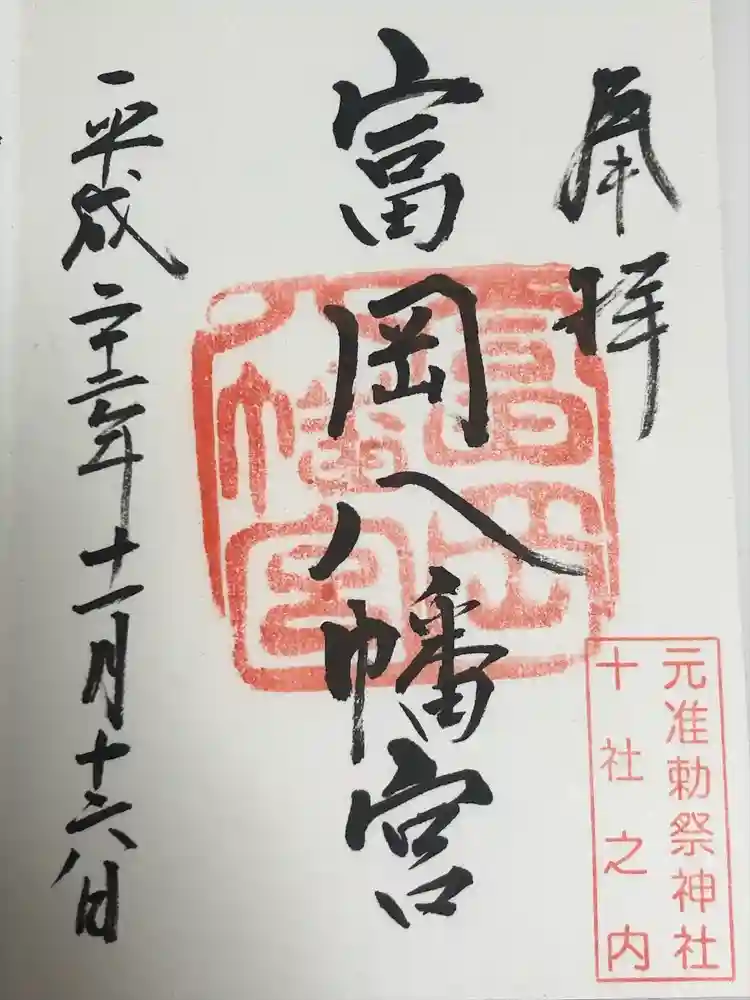 奉拝
富岡八幡宮
平成二十六年十一月十六日
富岡八幡宮
元准勅祭神社
十社之内